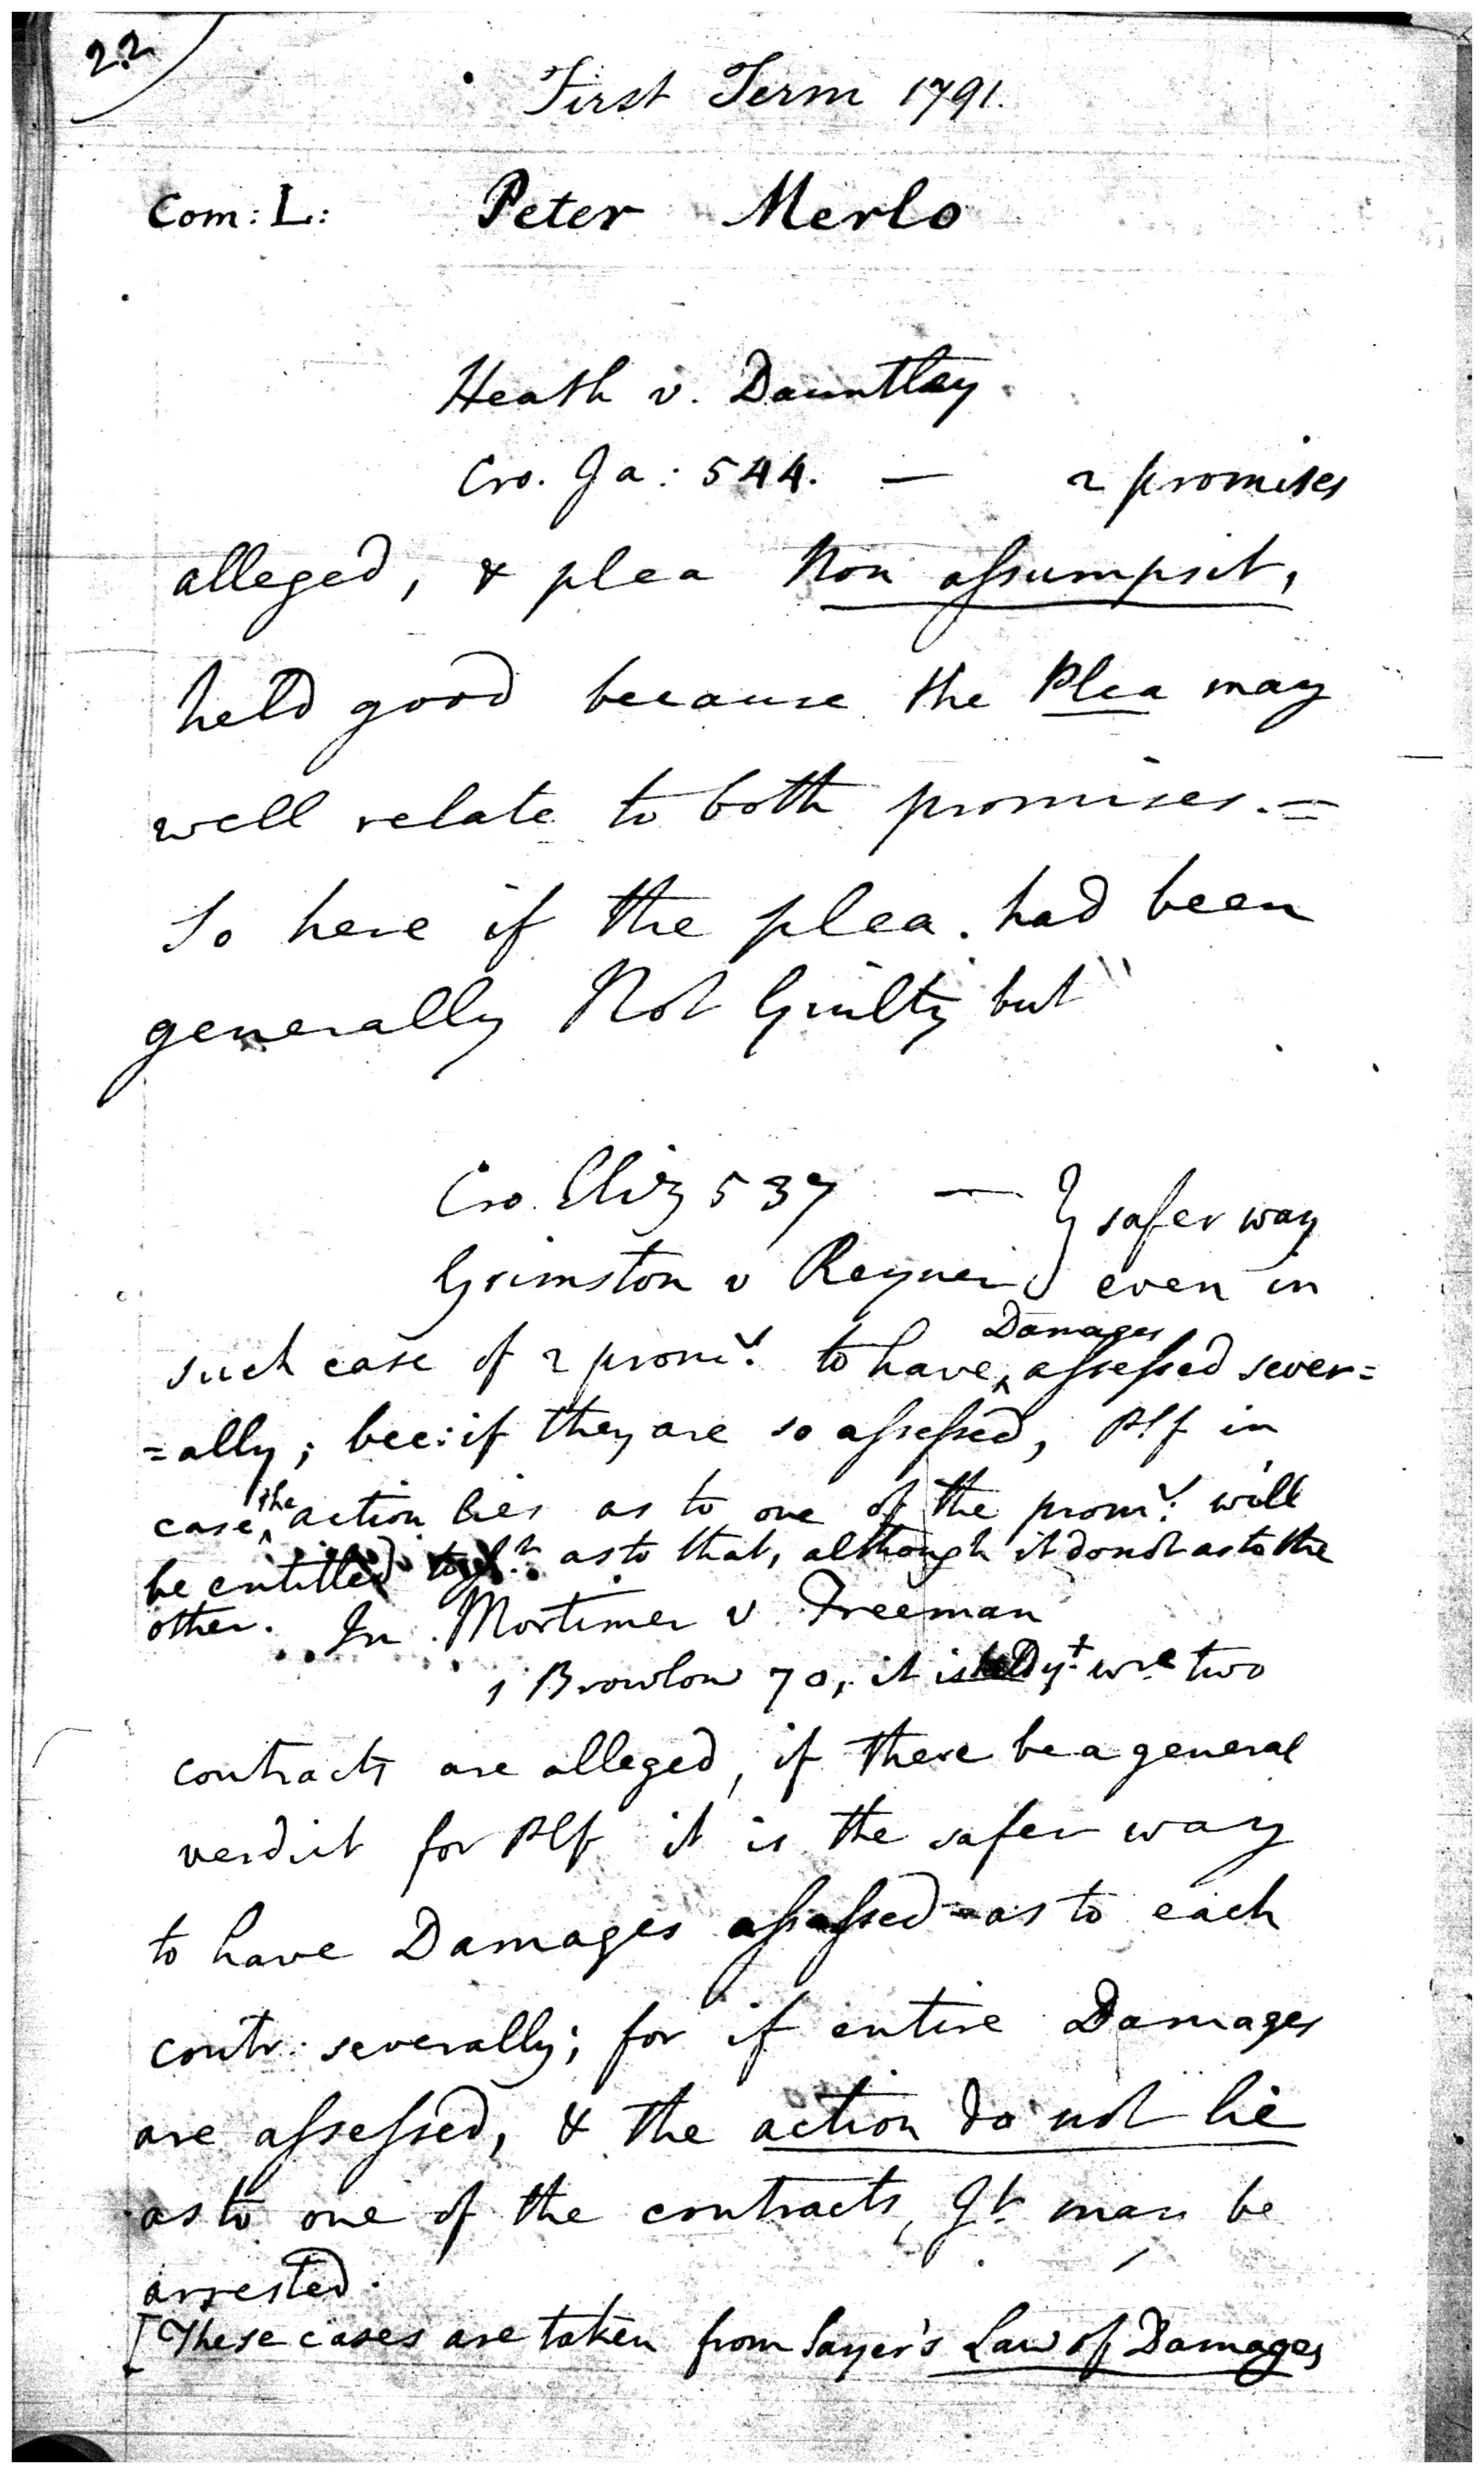 22
First Term 1791.
Com: L: Peter Merlo
Heath v. Dauntley
Cro. Ja: 544. — 2 promises
alleged, & plea Non assumpsit,
held good because the Plea may
well relate to both promises. =
So here if the plea had been
generally Not Guilty but "
Cro. Eliz 537 — } safer way
Grimston v Reyner } even in
Damages
such case of 2 promˢ. to have ‸ assessed sever=
=ally; bec: if they are so assessed, Plf in
the
case ‸ action lies as to one of the promˢ. will
be entitled to Jᵗ as to that, although it do not as to the
other. In Mortimer v Freeman
1 Brownlow 70, it is held yᵗ wre two
contracts are alleged, if there be a general
verdict for Plf it is the safer way
to have Damages assessed as to each
contr: severally; for if entire Damages
are assessed, & the action do not lie
as to one of the contracts, Jᵗ may be
arrested.
[These cases are taken from Sayer's Law of Damages